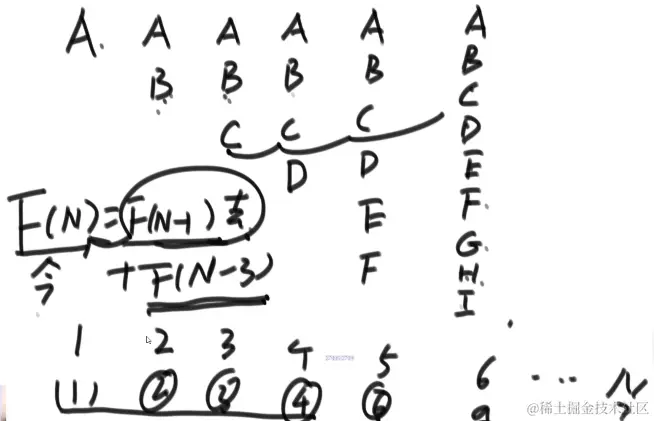 A. A A A A A
B B B B B
C C C C
D D D
E E
F(N)=F(N-1) 去 F F
今 +F(N-3) G
H
I
1 2 3 4 5 6 ... N
(1) 2 3 4 6 9
@稀土掘金技术社区